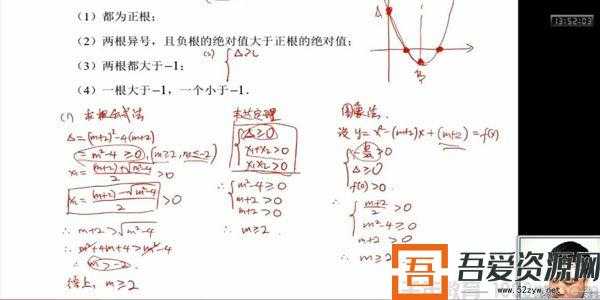 13:52:03
(1) 都为正根;
(2) 两根异号,且负根的绝对值大于正根的绝对值;
(3) 两根都大于-1;
(4) 一根大于-1,一个小于-1.
(1) 求根公式法
Δ=(m+2)²-4(m+2)
=m²-4≥0, (m≥2, m≤-2)
x₁=(m+2)+√(m²-4)/2>0
x₂=(m+2)-√(m²-4)/2>0
∴ m+2>√(m²-4)
∴ m²+4m+4>m²-4
∴ m>-2
综上, m≥2
韦达定理
Δ≥0
x₁+x₂>0
x₁x₂>0
∴ m²-4≥0
m+2>0
m+2>0
∴ m≥2
图象法
设 y=x²-(m+2)x+(m+2)=f(x)
Δ≥0
f(0)>0.
∴ (m+2)/2>0
m²-4≥0
m+2>0
∴ m≥2
吾爱资源网
www.52zyw.net